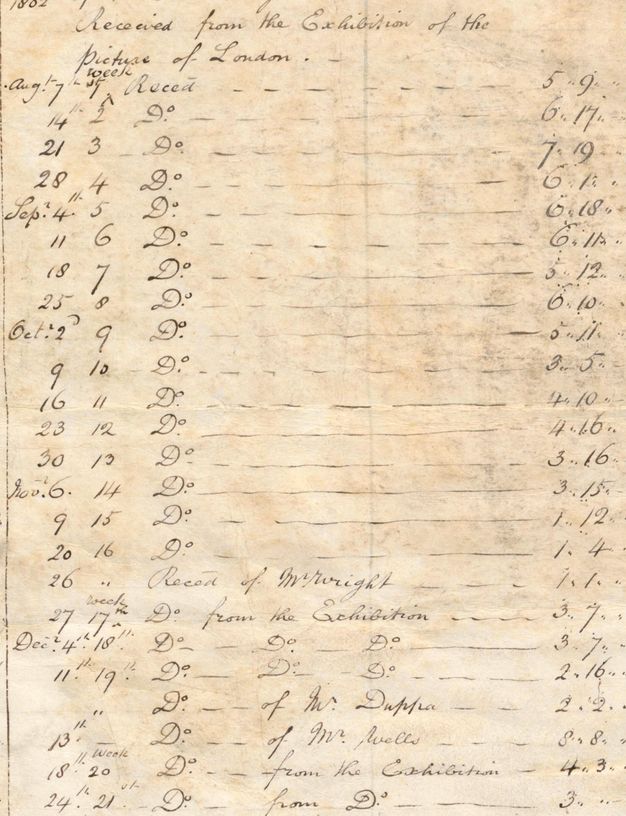 1802
Received from the Exhibition of the
Picture of London. —
week
Augt 7th 1st Reced — — — — — 5 „ 9 „
14th 2 Do. — — — — — 6 „ 17 „
21 3 — Do. — — — — — 7 „ 19
28 4 Do. — — — — — 6 „ 1 „
Sepr. 4th. 5 Do. — — — — — 6 „ 18 „
11 6 Do. — — — — — 6 „ 11 „
18 7 Do. — — — — — 3 „ 12 „
25 8 Do. — — — — — 6 „ 10 „
Octr. 2d 9 Do. — — — — — 5 „ 11 „
9 10 Do. — — — — — 3 „ 5 „
16 11 Do. — — — — — 4 „ 10 „
23 12 Do. — — — — — 4 „ 16 „
30 13 Do — — — — — 3 „ 16 „
Novr. 6. 14 Do. — — — — — 3 „ 15 „
9 15 Do. — — — — — 1 „ 12 „
20 16 Do. — — — — — 1 „ 4 „
26 „ Reced of Mr Wright — — — 1 „ 1 „
week
27 17th Do. from the Exhibition — — 3 „ 7 „
Decr. 4th. 18th. Do — Do. Do. — — — 3 „ 7 „
11th. 19th. Do. — Do — Do — — — 2 „ 16 „
„ Do. — of Mr. Duppa — — — 2 „ 2 „
13th. — Do. — of Mr. Wells — — — 8 „ 8 „
week
18th. 20 Do. — — from the Exhibition — 4 „ 3 „
24th. 21st. Do. — from Do. — — — 3 „ „